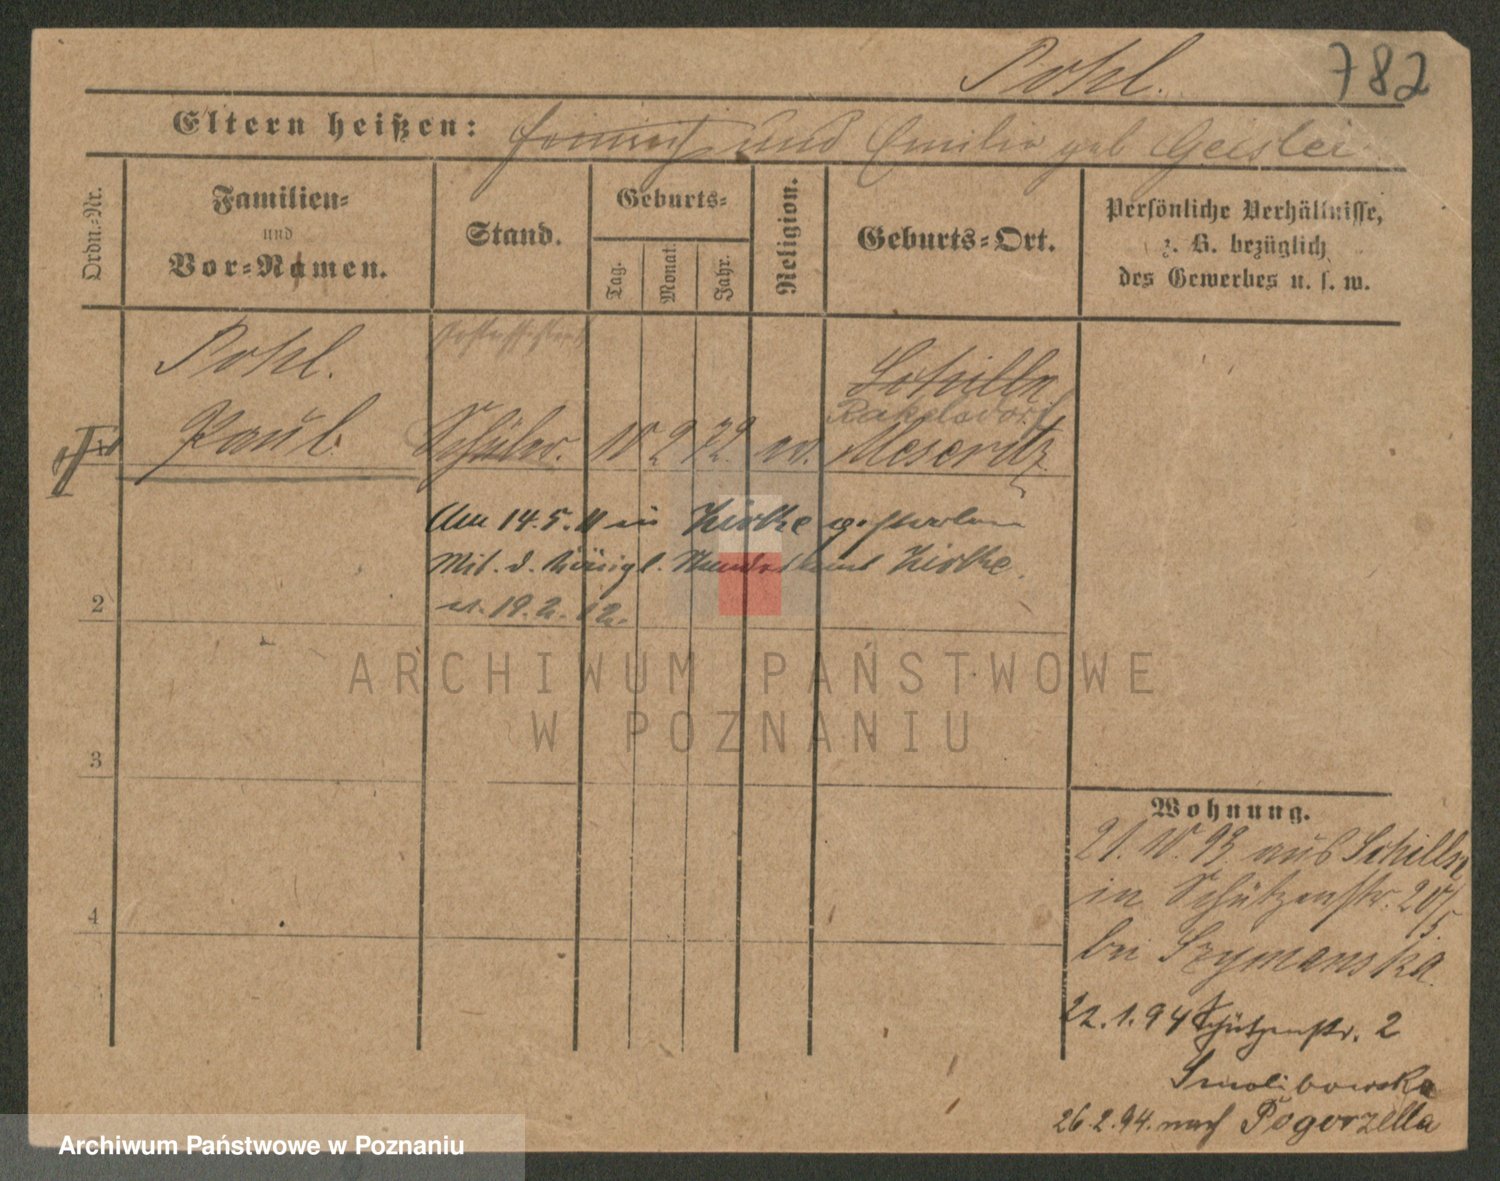 Pohl. 782
Eltern heißen: Heinrich und Emilie geb Geisler
Ordn.=Nr.
Familien=
und
Vor=Namen.
Stand.
Geburts=
Tag.
Monat.
Jahr.
Religion.
Geburts=Ort.
Persönliche Verhältnisse,
z. B. bezüglich
des Gewerbes u. s. w.
Pohl.
Schilln
Rakelsdorf
Paul. Schüler. 10 2 72 ev. Meseritz
Am 14.5.11 in Zirke gestorben
Mit. d. Königl. Standesamt Zirke
v. 19.2.12.
2
3
4
Wohnung.
21.10.93 aus Schilln
in Schützenstr. 20/5
bei Szymanska
22.1.94 Schützenstr. 2
Smolibowska
26.2.94. nach Pogorzella
ARCHIWUM PAŃSTWOWE
W POZNANIU
Archiwum Państwowe w Poznaniu